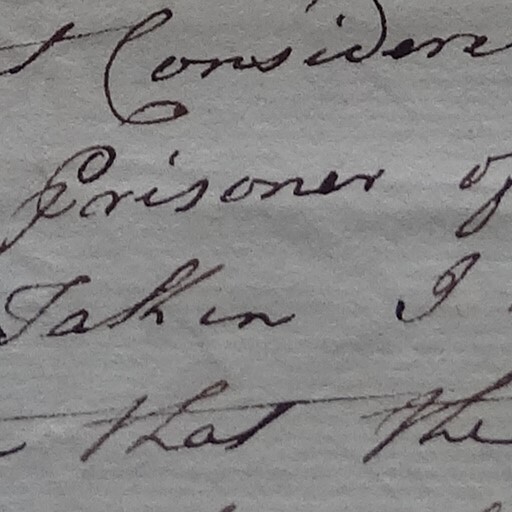 Consider
Prisoner of
Taken I
that the